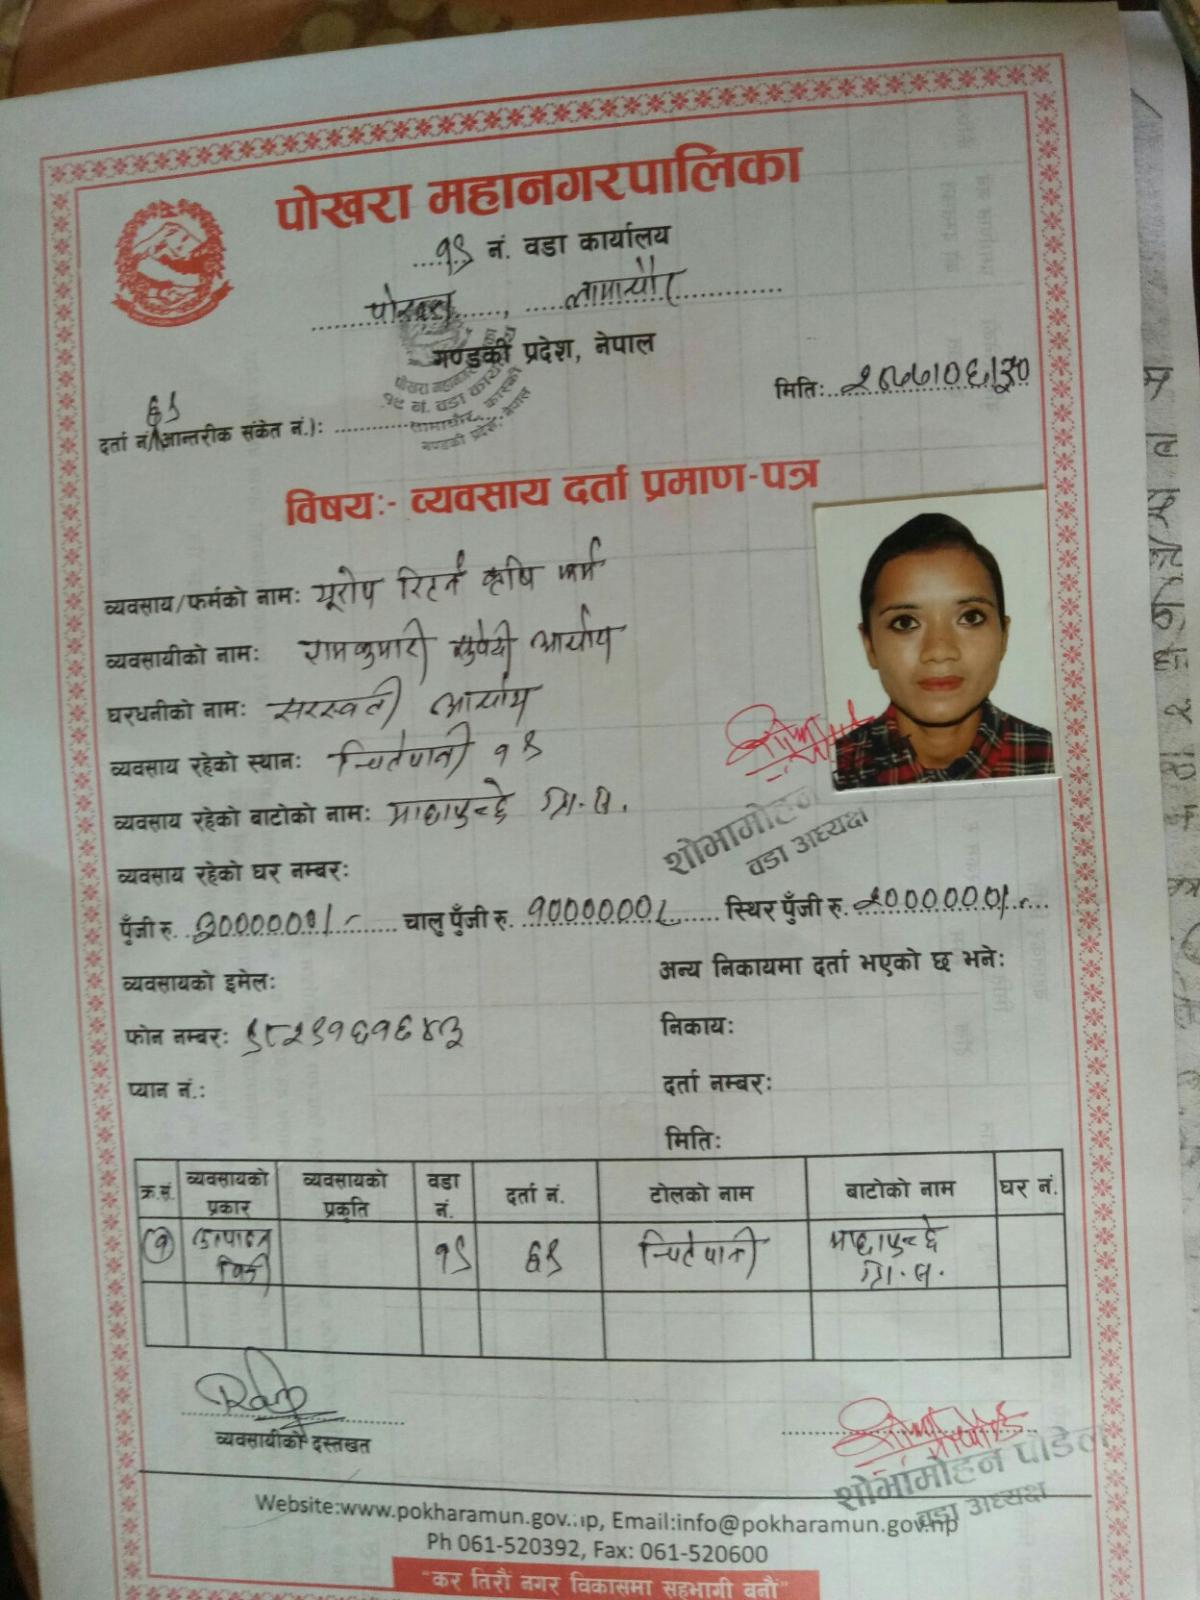 पोखरा महानगरपालिका
१९ नं. वडा कार्यालय
पोखरा, लामाचौर
गण्डकी प्रदेश, नेपाल
पोखरा महानगरपालिका
१९ नं. वडा कार्यालय
लामाचौर, कास्की
गण्डकी प्रदेश, नेपाल
मितिः २०७७।०६।३०
६९
दर्ता नं.(आन्तरीक संकेत नं.):
विषयः- व्यवसाय दर्ता प्रमाण-पत्र
व्यवसाय/फर्मको नामः यूरोप रिटर्न कृषि फर्म
व्यवसायीको नामः रामकुमारी सुवेदी आचार्य
घरधनीको नामः सरस्वती आचार्य
व्यवसाय रहेको स्थानः चितेपानी १९
व्यवसाय रहेको बाटोको नामः माछापुच्छ्रे गा.स.
शोभामोहन
वडा अध्यक्ष
व्यवसाय रहेको घर नम्बरः
पुँजी रु. ३००००००।- चालु पुँजी रु. १००००००।- स्थिर पुँजी रु. २००००००।-
व्यवसायको इमेलः अन्य निकायमा दर्ता भएको छ भनेः
फोन नम्बरः ९८२९१६१६४३ निकायः
प्यान नं.: दर्ता नम्बरः
मितिः
क्र.सं. व्यवसायको प्रकार व्यवसायको प्रकृति वडा नं. दर्ता नं. टोलको नाम बाटोको नाम घर नं.
१ १९ ६९ चितेपानी माछापुच्छ्रे गा.स.
व्यवसायीको दस्तखत
शोभामोहन पौडेल
वडा अध्यक्ष
Website:www.pokharamun.gov.np, Email:info@pokharamun.gov.np
Ph 061-520392, Fax: 061-520600
"कर तिरौं नगर विकासमा सहभागी बनौं"